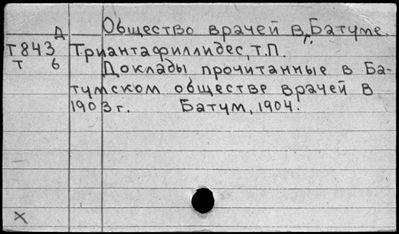 Д Общество врачей в г. Батуме.
Т843 Триантафиллидес, Т.П.
Т 6 Доклады прочитанные в Ба-
тумском обществе врачей в
1903 г. Батум, 1904.
X